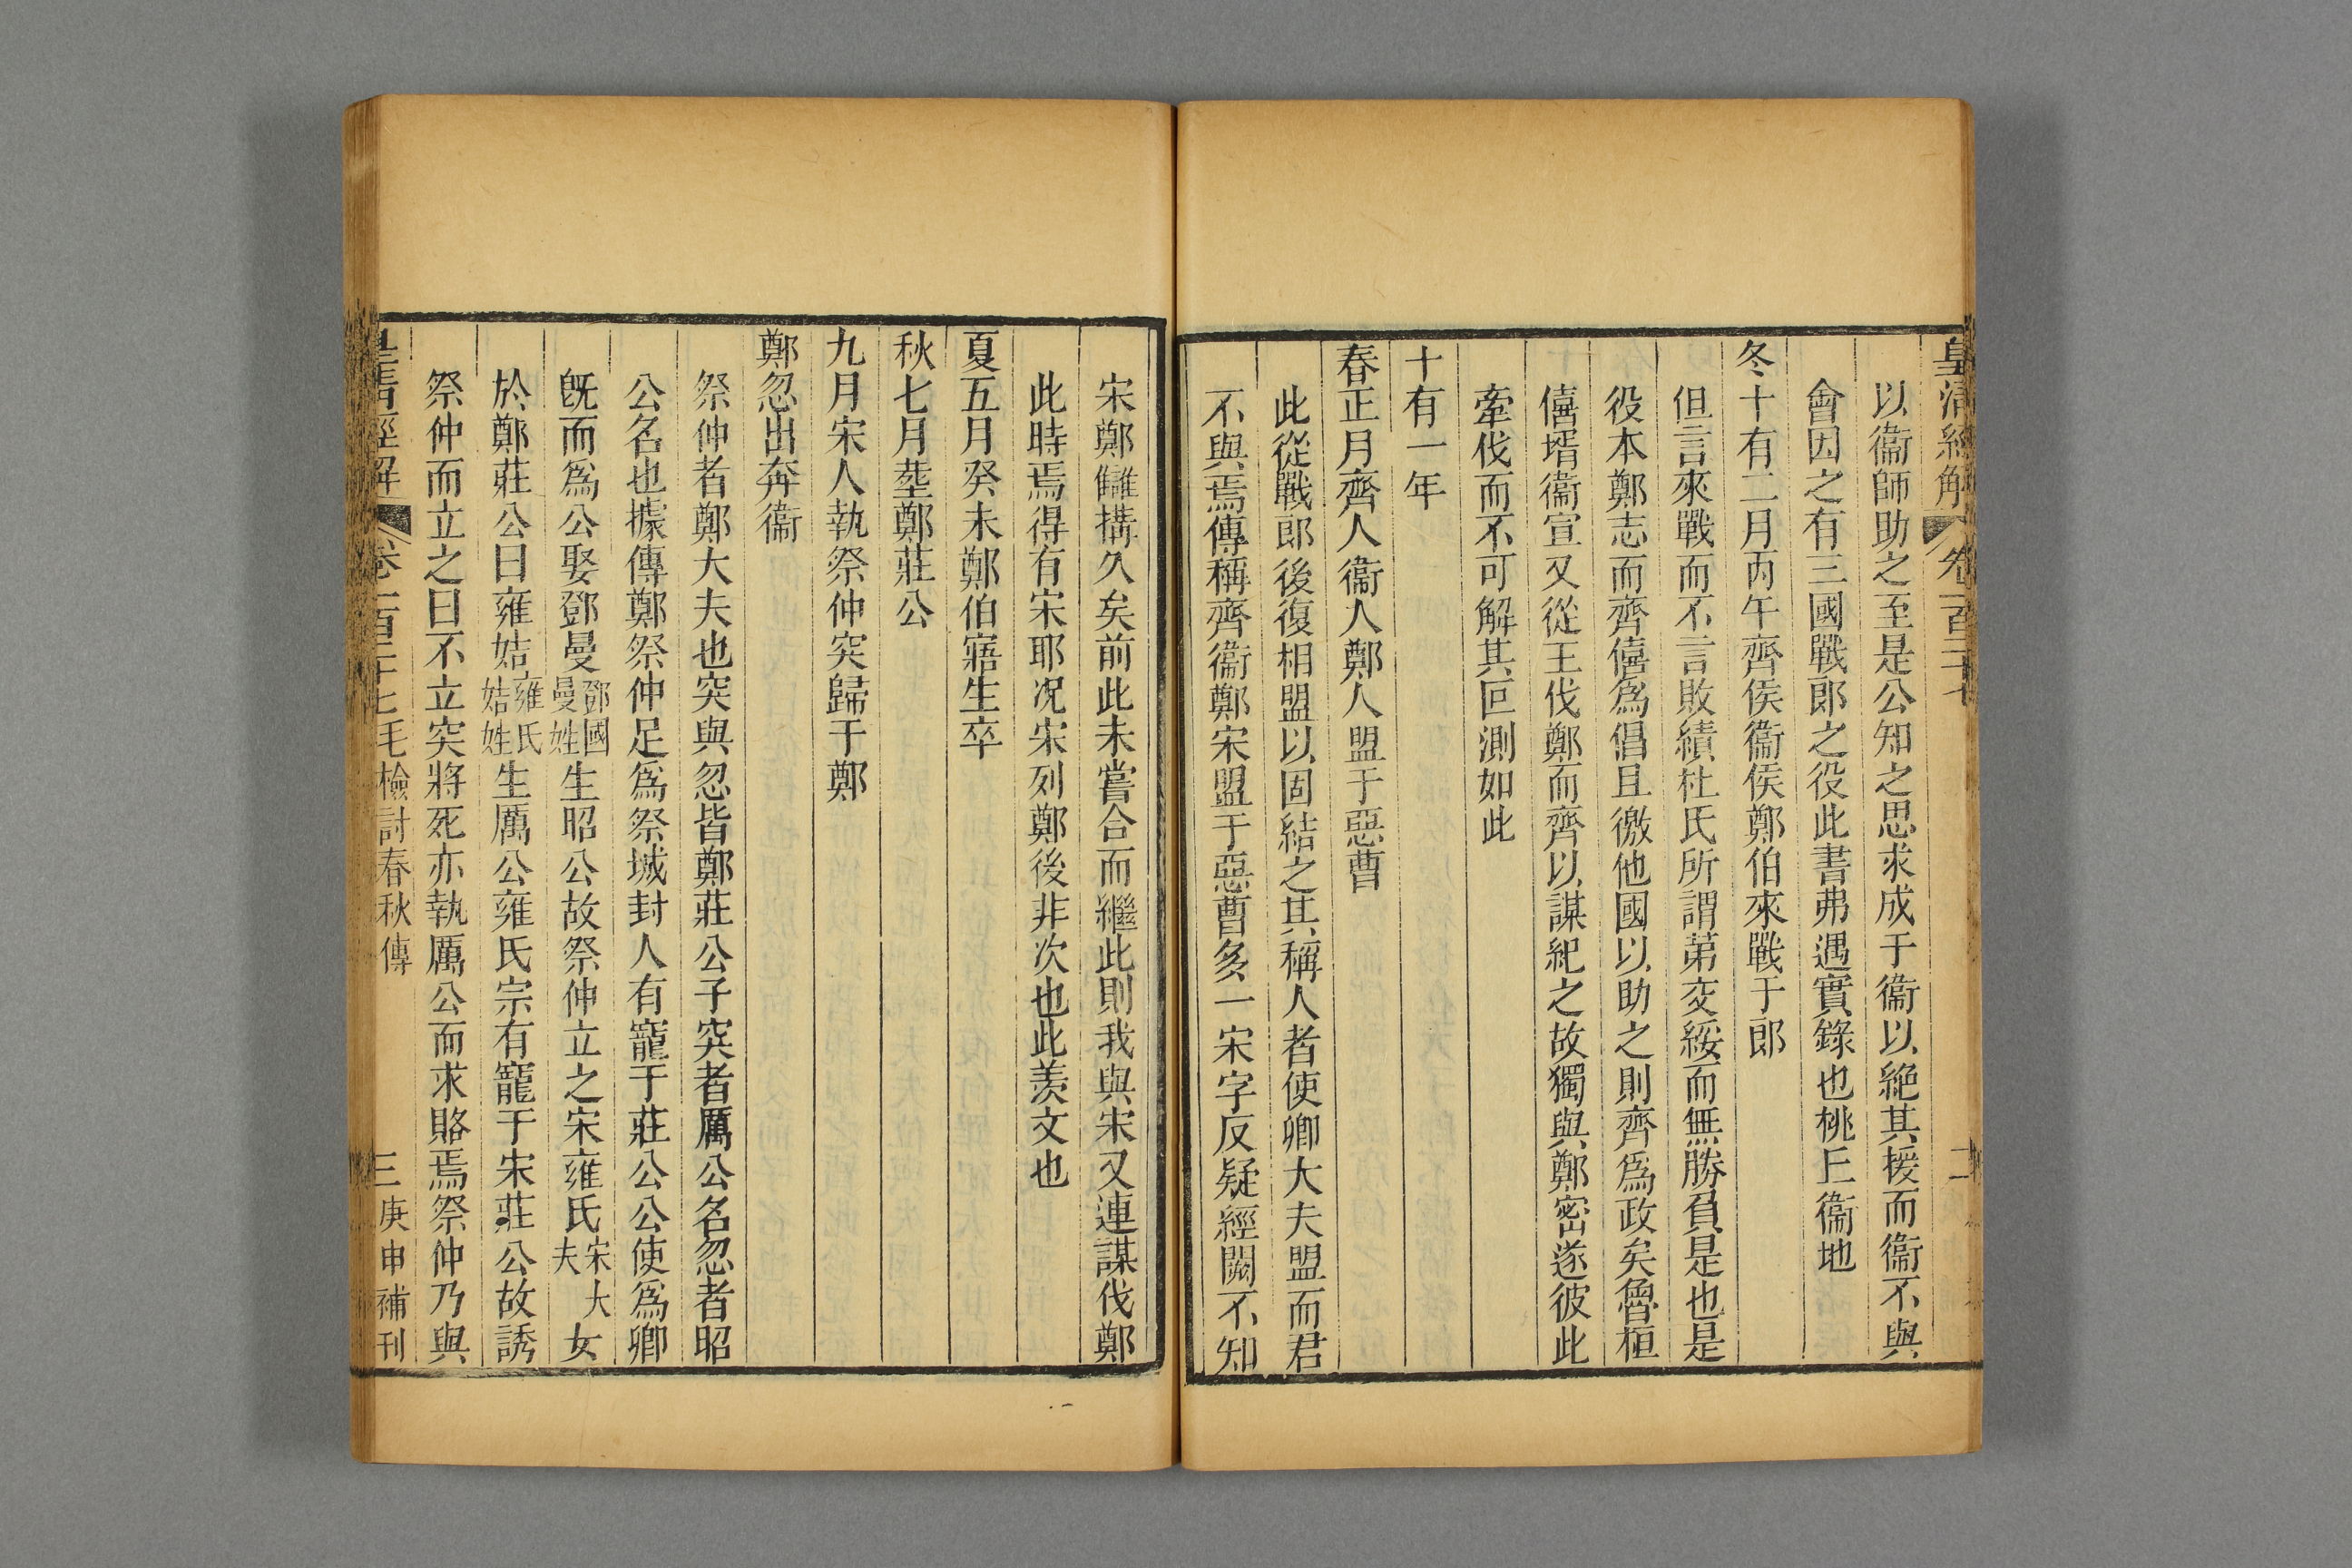 皇清經解 卷一百二十七 二
以衞師助之至是公知之思求成于衞以絶其援而衞不與
會因之有三國戰郎之役此書弗遇實錄也桃丘衞地
冬十有二月丙午齊侯衞侯鄭伯來戰于郎
但言來戰而不言敗績杜氏所謂苐交綏而無勝負是也是
役本鄭志而齊僖爲倡且徼他國以助之則齊爲政矣魯桓
僖壻衞宣又從王伐鄭而齊以謀紀之故獨與鄭密遂彼此
牽伐而不可解其叵測如此
十有一年
春正月齊人衞人鄭人盟于惡曹
此從戰郎後復相盟以固結之其稱人者使卿大夫盟而君
不與焉傳稱齊衞鄭宋盟于惡曹多一宋字反疑經闕不知
宋鄭讎搆久矣前此未嘗合而繼此則我與宋又連謀伐鄭
此時焉得有宋耶况宋列鄭後非次也此羨文也
夏五月癸未鄭伯寤生卒
秋七月塟鄭莊公
九月宋人執祭仲突歸于鄭
鄭忽出奔衞
祭仲者鄭大夫也突與忽皆鄭莊公子突者厲公名忽者昭
公名也據傳鄭祭仲足爲祭城封人有寵于莊公公使爲卿
旣而爲公娶鄧曼鄧國曼姓生昭公故祭仲立之宋雍氏宋大夫女
於鄭莊公曰雍姞雍氏姞姓生厲公雍氏宗有寵于宋莊公故誘
祭仲而立之曰不立突將死亦執厲公而求賂焉祭仲乃與
皇清經解 卷一百二十七毛檢討春秋傳 三 庚申補刊